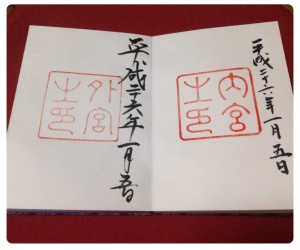 平成二十六年一月五日
内宮
之印
平成二十六年一月五日
外宮
之印